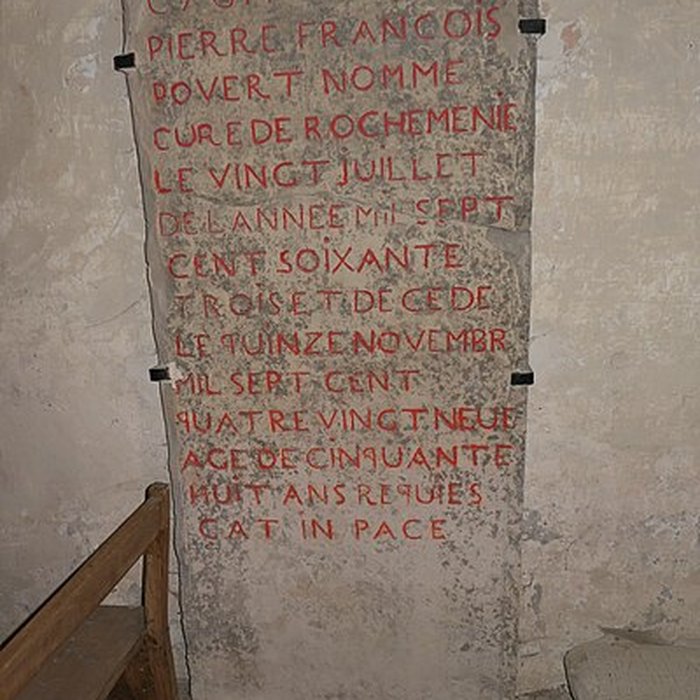 PIERRE FRANCOIS
POVERT NOMME
CURE DE ROCHEMENIE
LE VINGT JUILLET
DE LANNEE MIL SEPT
CENT SOIXANTE
TROIS ET DECEDE
LE QUINZE NOVEMBR
MIL SEPT CENT
QUATRE VINGT NEUF
AGE DE CINQUANTE
HUIT ANS REQUIES
CAT IN PACE